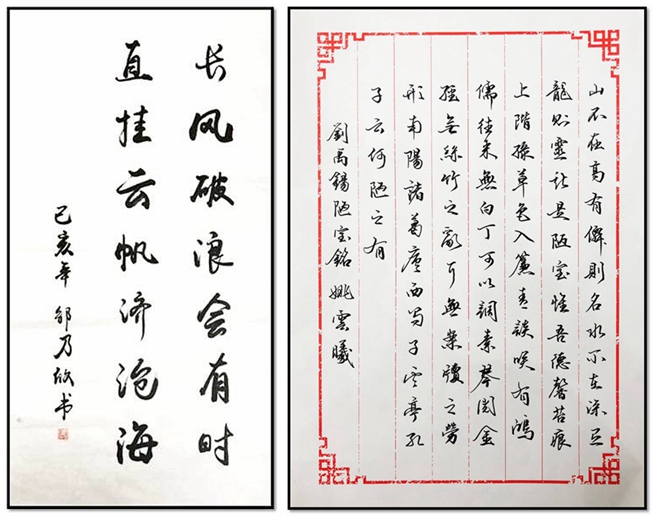 长风破浪会有时
直挂云帆济沧海
己亥年 邹乃欣书
山不在高有僊則名水不在深有
龍则靈斯是陋室惟吾德馨苔痕
上階绿草色入簾青談笑有鴻
儒往来無白丁可以調素琴閲金
經無絲竹之亂耳無案牘之勞
形南陽諸葛廬西蜀子雲亭孔
子云何陋之有
劉禹錫陋室銘 姚雲曦